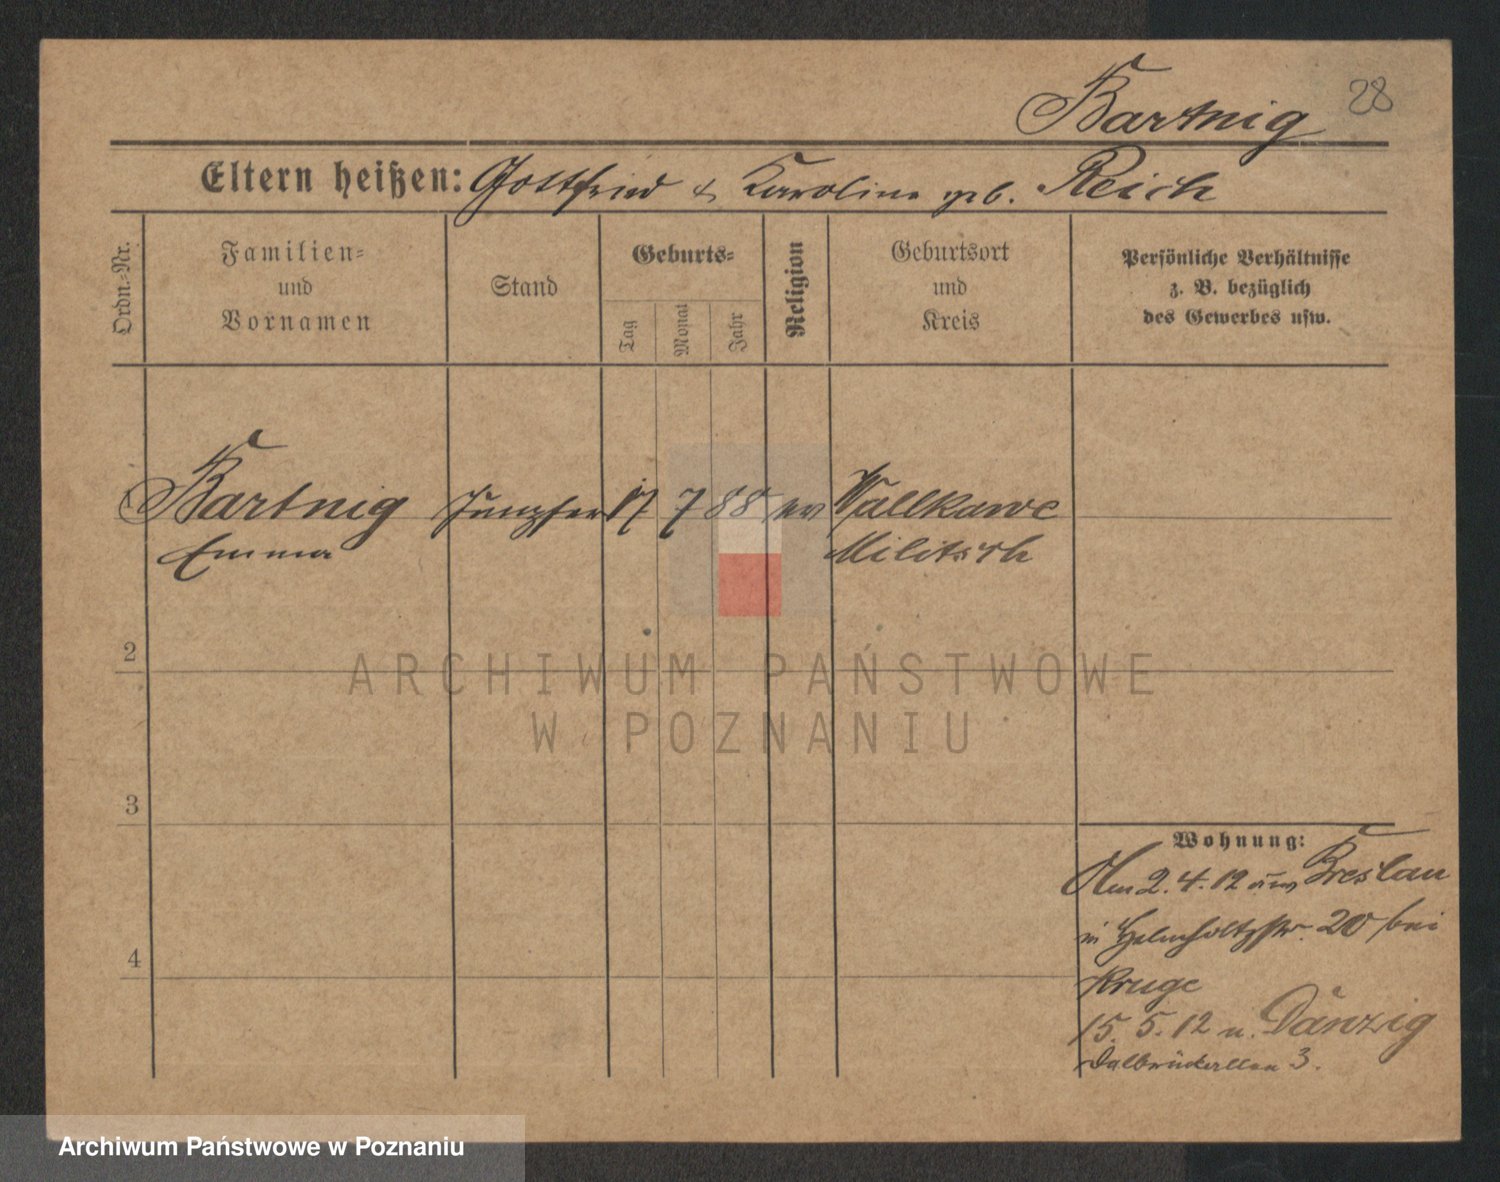 Bartnig 28
Eltern heißen: Gottfried & Karoline geb. Reich
Ordn.-Nr.
Familien-
und
Vornamen
Stand
Geburts-
Tag
Monat
Jahr
Religion
Geburtsort
und
Kreis
Persönliche Verhältnisse
z. B. bezüglich
des Gewerbes usw.
Bartnig Jungfer 17 7 88 ev Wallkawe
Emma Militsch
2
3
4
Wohnung:
Am 2. 4. 12 Breslau
in Helmholtzstr. 20 bei
Kruge
15. 5. 12 n. Danzig
3.
ARCHIWUM PAŃSTWOWE
W POZNANIU
Archiwum Państwowe w Poznaniu